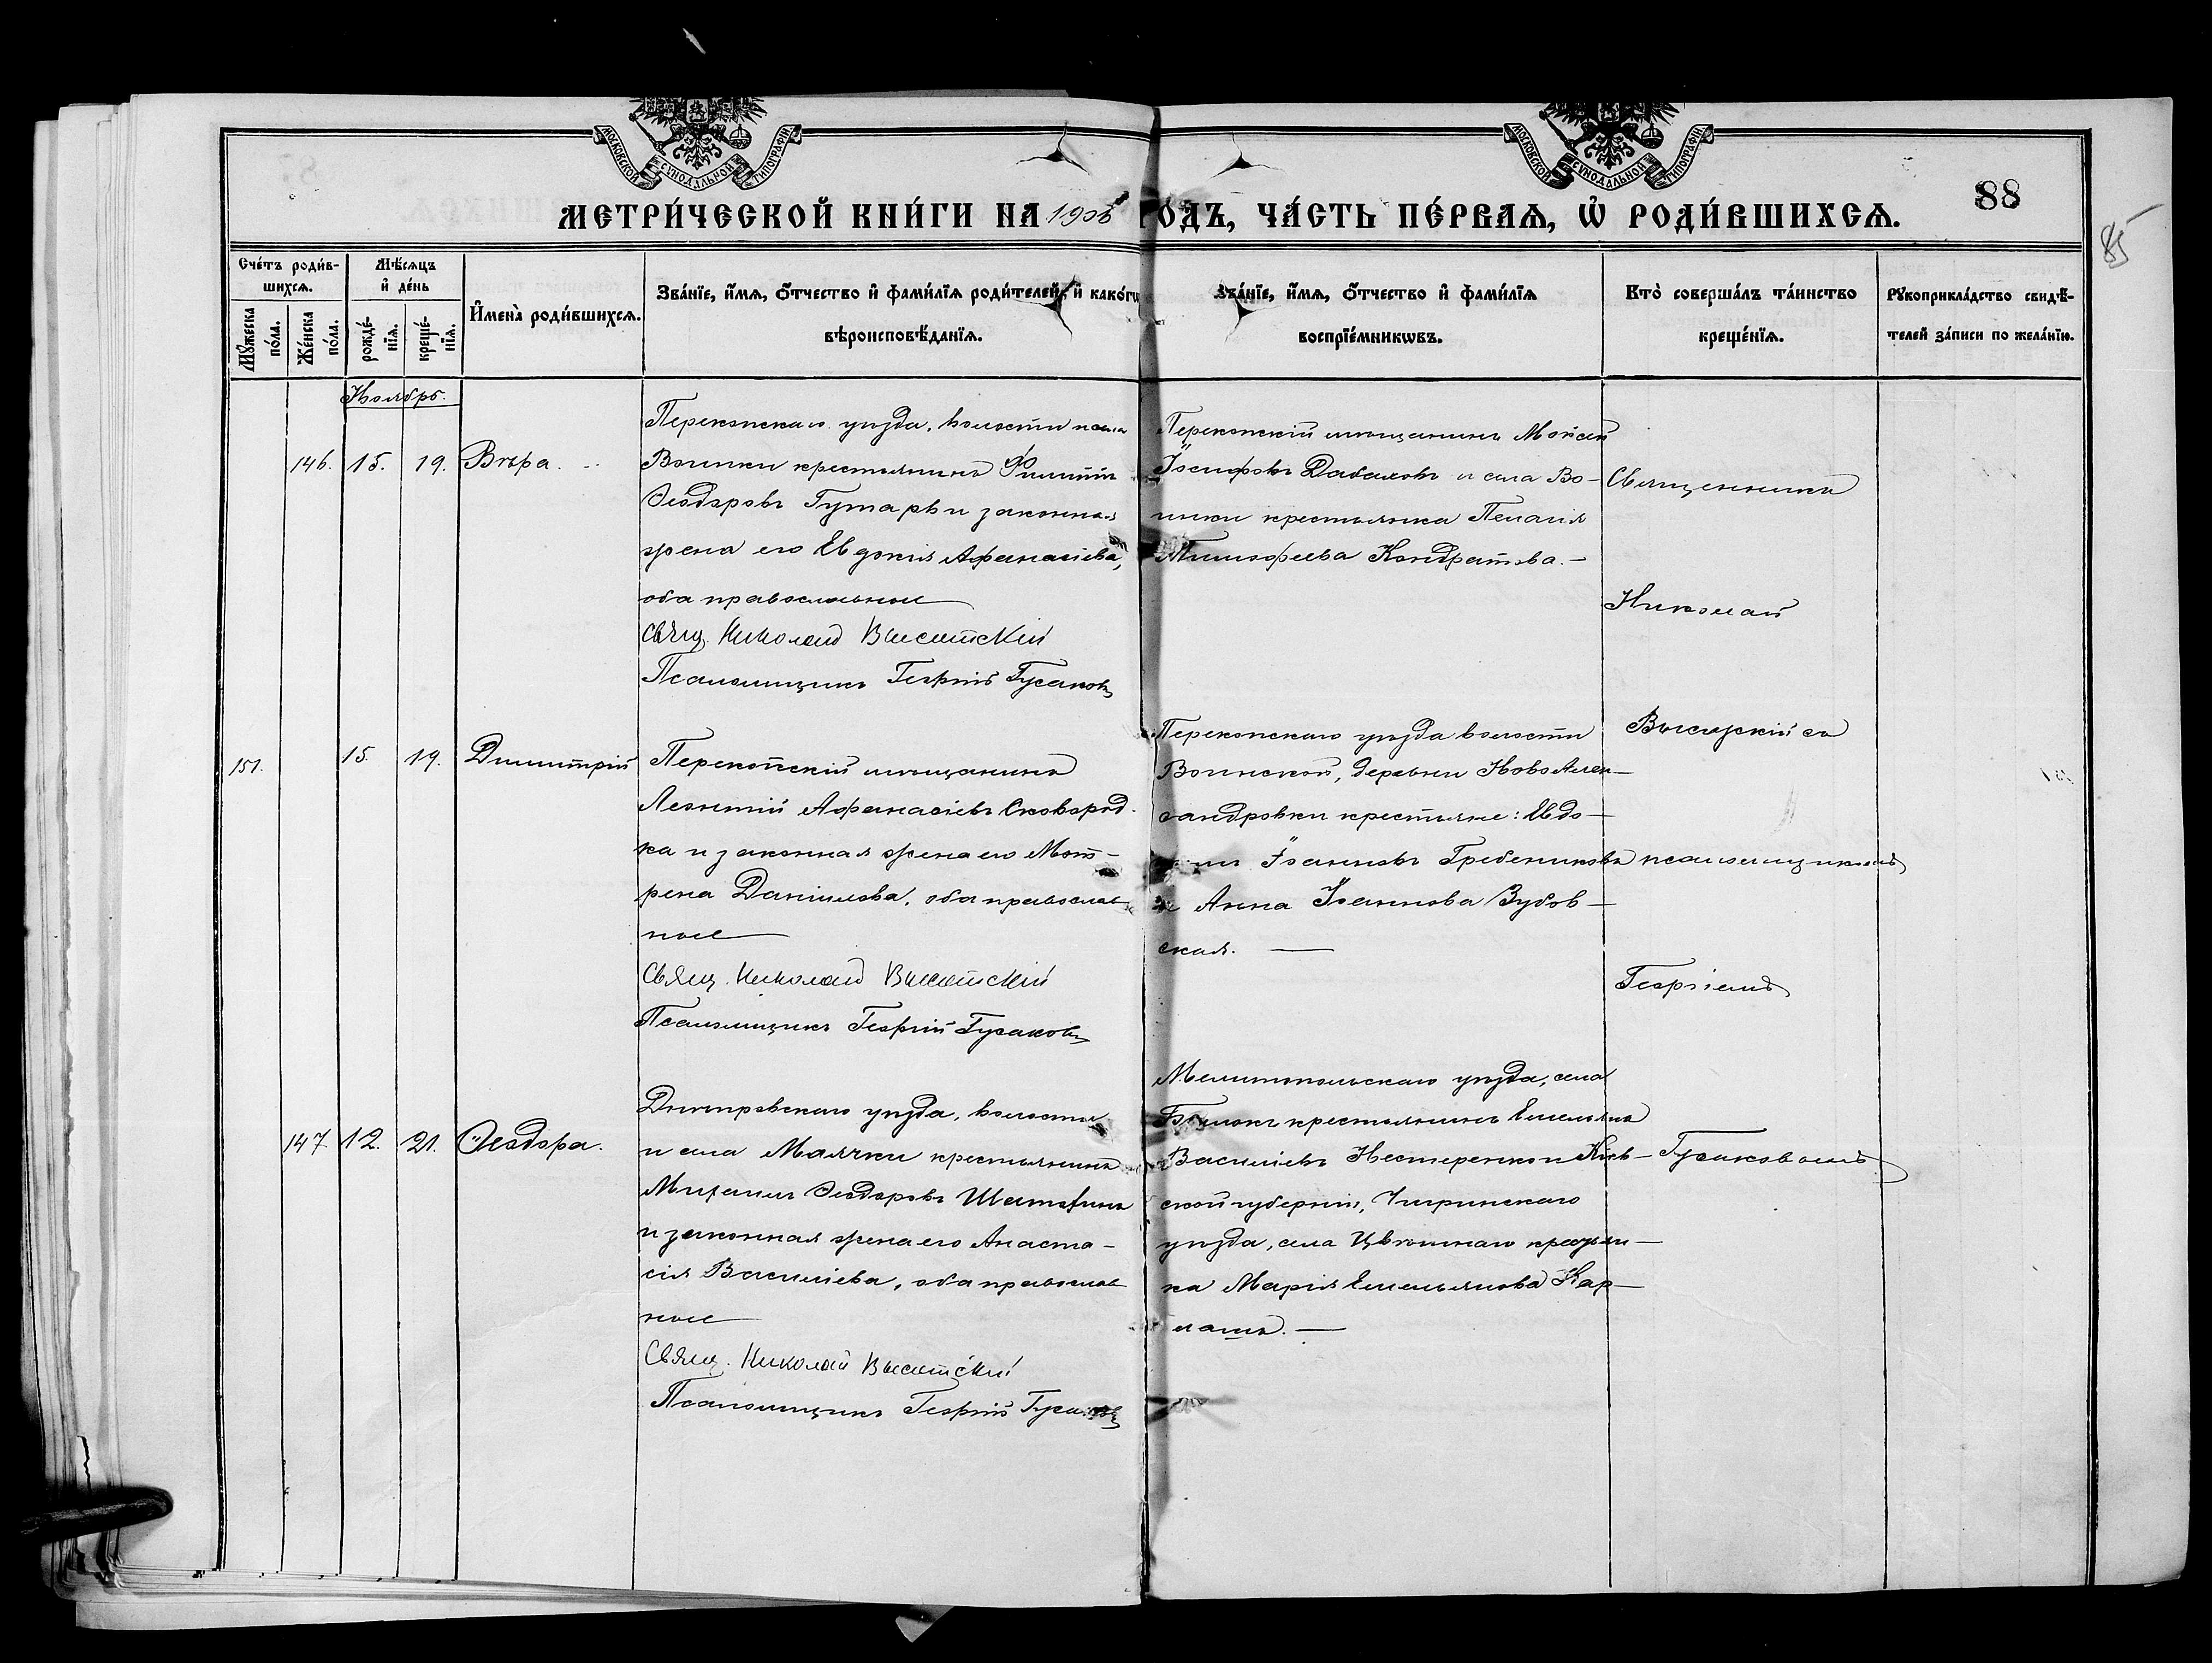 МОСКОВСКОЙ СѴНОДАЛЬНОЙ ТИПОГРАФІИ
МОСКОВСКОЙ СѴНОДАЛЬНОЙ ТИПОГРАФІИ
88
85
МЕТРИ́ЧЕСКОЙ КНИ́ГИ НА 1906 ГО́ДЪ, ЧА́СТЬ ПЕ́РВАѦ, Ѡ҆ РОДИ́ВШИХСѦ.
Сче́тъ роди́в-
шихсѧ.
Мѣ́сѧцъ
и҆ де́нь
Мꙋ́жеска по́ла.
Же́нска по́ла.
рожде́-
нїѧ.
креще́-
нїѧ.
И҆мена̀ роди́вшихсѧ.
Зва́нїе, и҆́мѧ, ѻ҆́тчество и҆ фами́лїѧ роди́телей, и҆ како́гѡ
вѣроисповѣ́данїѧ.
Зва́нїе, и҆́мѧ, ѻ҆́тчество и҆ фами́лїѧ
воспрїе́мникѡвъ.
Кто̀ соверша́лъ та́инство
креще́нїѧ.
Рꙋкоприкла́дство свидѣ́-
телей за́писи по жела́нїю.
Ноябрь.
146. 15. 19. Вѣра.
Перекопскаго уѣзда, волости и села
Воинки крестьянинъ Филиппъ
Ѳеодоровъ Гутарь и законная
жена его Евдокія Афанасіева,
оба православные
Свящ. Николай Высотскій
Псаломщикъ Георгій Гусаковъ
Перекопскій мѣщанинъ Моисей
Іосифовъ Дабаловъ и села Во-
инки крестьянка Пелагія
Тимофеева Кондратова.—
Священникъ
Николай
Высотскій съ
псаломщикомъ
Георгіемъ
Гусаковымъ
151. 15. 19. Димитрій
Перекопскій мѣщанинъ
Леонтій Афанасіевъ Сковород-
ка и законная жена его Мот-
рена Даніилова, оба православ
ные
Свящ. Николай Высотскій
Псаломщикъ Георгій Гусаковъ
Перекопскаго уѣзда волости
Воинской, деревни Ново Алек-
сандровки крестьяне: Евдо-
Іоанновъ Гребениковъ
и Анна Іоаннова Зубов-
ская.—
147. 12. 21. Ѳеодора.
Днѣпровскаго уѣзда, волости
и села Маячки крестьянинъ
Михаилъ Ѳеодоровъ
и законная жена его Анаста-
сія Василіева, оба православ
ные
Свящ. Николай Высотскій
Псаломщикъ Георгій Гусаковъ
Мелитопольскаго уѣзда, села
крестьянинъ Емельянъ
Василіевъ Нестеренко и Кіев-
ской губерніи, Чигиринскаго
уѣзда, села Цвѣтнаго крестьян-
ка Марія Емельянова Кар-
лашъ.—